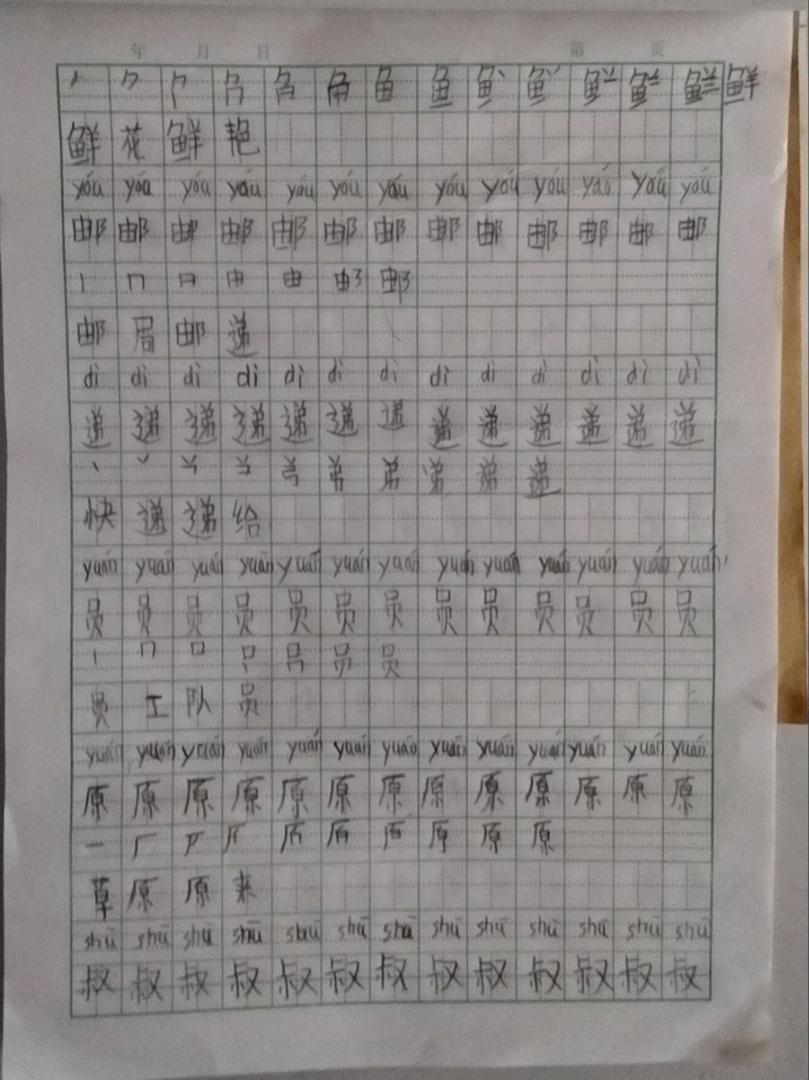 年 月 日 第 页
鲜 鲜
鲜 花 鲜 艳
yóu yóu yóu yóu yóu yóu yóu yóu yóu yóu yóu yóu yóu
邮 邮 邮 邮 邮 邮 邮 邮 邮 邮 邮 邮 邮
丨 由 由 邮
邮 局 邮 递
dì dì dì dì dì dì dì dì dì dì dì dì dì
递 递 递 递 递 递 递 递 递 递 递 递 递
丶 弟 弟 递
快 递 递 给
yuán yuán yuán yuán yuán yuán yuán yuán yuán yuán yuán yuán yuán
员 员 员 员 员 员 员 员 员 员 员 员 员
丨 口 员
员 工 队 员
yuán yuán yuán yuán yuán yuán yuán yuán yuán yuán yuán yuán yuán
原 原 原 原 原 原 原 原 原 原 原 原 原
一 厂 原
草 原 原 来
shū shū shū shū shū shū shū shū shū shū shū shū shū
叔 叔 叔 叔 叔 叔 叔 叔 叔 叔 叔 叔 叔